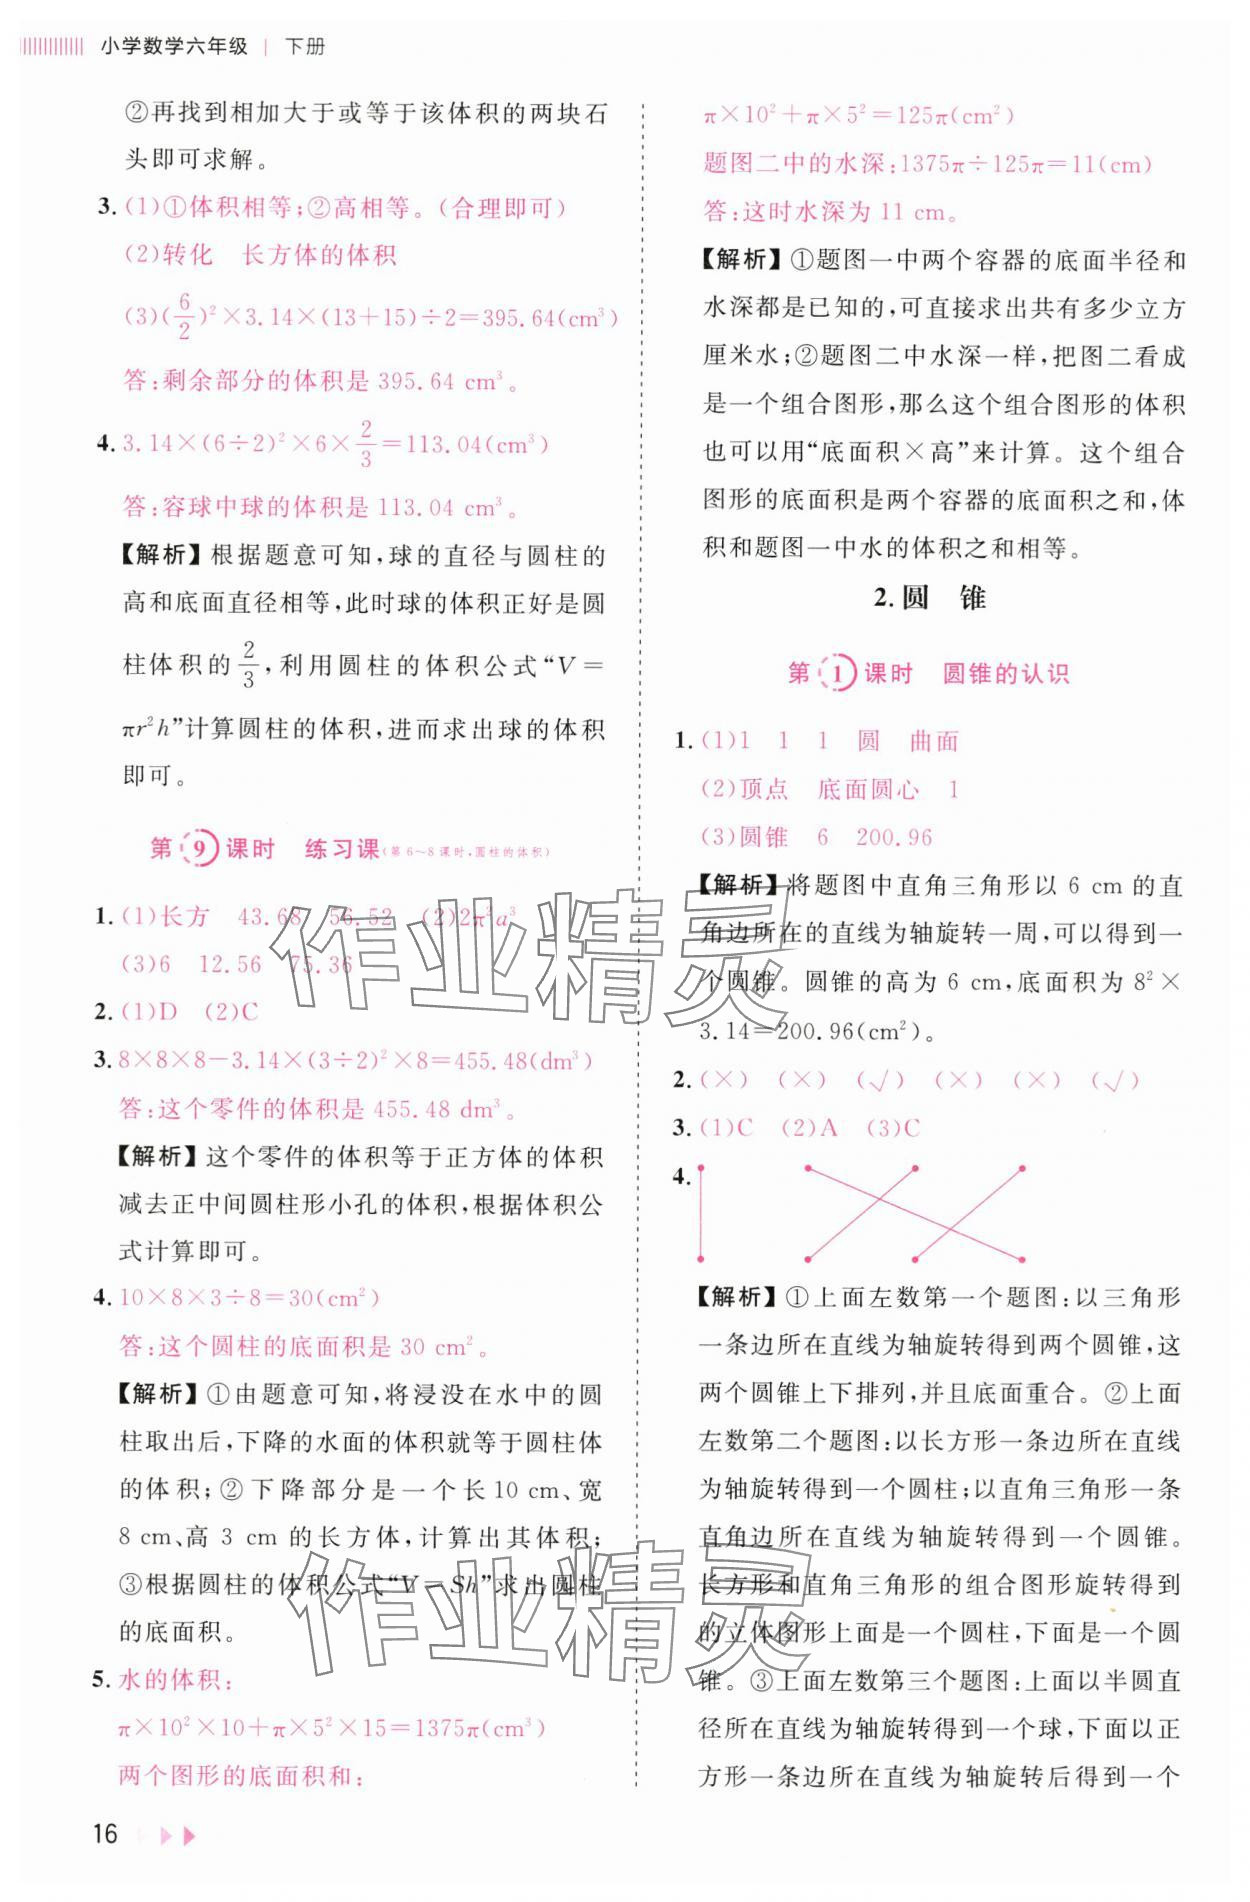 小学数学六年级 | 下册
②再找到相加大于或等于该体积的两块石
头即可求解。
3. (1)①体积相等;②高相等。(合理即可)
(2)转化 长方体的体积
(3)(6/2)²×3.14×(13+15)÷2=395.64(cm³)
答:剩余部分的体积是 395.64 cm³。
4. 3.14×(6÷2)²×6×2/3=113.04(cm³)
答:容球中球的体积是 113.04 cm³。
【解析】根据题意可知,球的直径与圆柱的
高和底面直径相等,此时球的体积正好是圆
柱体积的 2/3,利用圆柱的体积公式“V=
πr²h”计算圆柱的体积,进而求出球的体积
即可。
第 9 课时 练习课(第 6~8 课时,圆柱的体积)
1. (1)长方 43.68 56.52 (2)2π³a³
(3)6 12.56 75.36
2. (1)D (2)C
3. 8×8×8-3.14×(3÷2)²×8=455.48(dm³)
答:这个零件的体积是 455.48 dm³。
【解析】这个零件的体积等于正方体的体积
减去正中间圆柱形小孔的体积,根据体积公
式计算即可。
4. 10×8×3÷8=30(cm²)
答:这个圆柱的底面积是 30 cm²。
【解析】①由题意可知,将浸没在水中的圆
柱取出后,下降的水面的体积就等于圆柱体
的体积;②下降部分是一个长 10 cm、宽
8 cm、高 3 cm 的长方体,计算出其体积;
③根据圆柱的体积公式“V=Sh”求出圆柱
的底面积。
5. 水的体积:
π×10²×10+π×5²×15=1375π(cm³)
两个图形的底面积和:
16
π×10²+π×5²=125π(cm²)
题图二中的水深:1375π÷125π=11(cm)
答:这时水深为 11 cm。
【解析】①题图一中两个容器的底面半径和
水深都是已知的,可直接求出共有多少立方
厘米水;②题图二中水深一样,把图二看成
是一个组合图形,那么这个组合图形的体积
也可以用“底面积×高”来计算。这个组合
图形的底面积是两个容器的底面积之和,体
积和题图一中水的体积之和相等。
2.圆 锥
第 1 课时 圆锥的认识
1. (1)1 1 1 圆 曲面
(2)顶点 底面圆心 1
(3)圆锥 6 200.96
【解析】将题图中直角三角形以 6 cm 的直
角边所在的直线为轴旋转一周,可以得到一
个圆锥。圆锥的高为 6 cm,底面积为 8²×
3.14=200.96(cm²)。
2. (×) (×) (√) (×) (×) (√)
3. (1)C (2)A (3)C
4.
【解析】①上面左数第一个题图:以三角形
一条边所在直线为轴旋转得到两个圆锥,这
两个圆锥上下排列,并且底面重合。②上面
左数第二个题图:以长方形一条边所在直线
为轴旋转得到一个圆柱;以直角三角形一条
直角边所在直线为轴旋转得到一个圆锥。
长方形和直角三角形的组合图形旋转得到
的立体图形上面是一个圆柱,下面是一个圆
锥。③上面左数第三个题图:上面以半圆直
径所在直线为轴旋转得到一个球,下面以正
方形一条边所在直线为轴旋转后得到一个
作业精灵
作业精灵